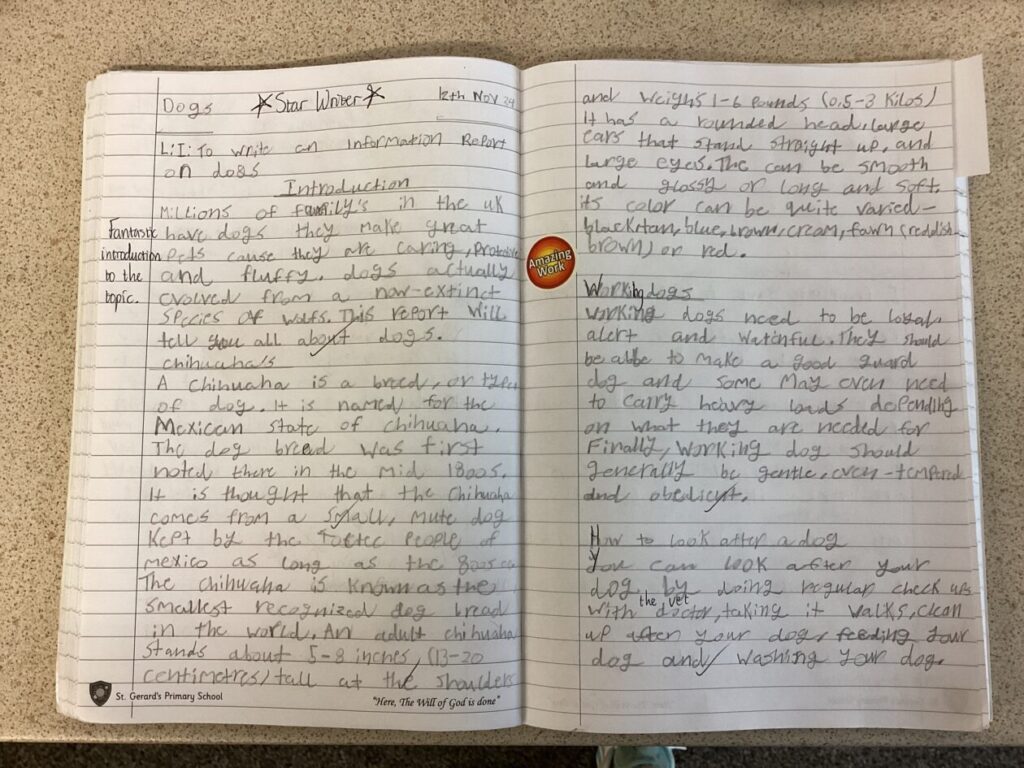 Dogs ★Star Writer★ 12th Nov 24
L.I: To write an Information Report
on dogs
Introduction
Millions of family's in the UK
have dogs they make great
Pets cause they are caring, Protective
and fluffy. dogs actually
evolved from a now-extinct
species of wolfs. This report will
tell you all about dogs.
Fantastic
introduction
to the
topic.
chihuaha's
A Chihuaha is a breed, or type
of dog. It is named for the
Mexican state of chihuaha.
The dog bread was first
noted there in the mid 1800s.
It is thought that the Chihuaha
comes from a small, mute dog
kept by the Toltec People of
mexico as long as the 800s
The chihuaha is known as the
smallest recognized dog bread
in the world. An adult chihuaha
stands about 5-8 inches, (13-20
centimetres) tall at the shoulders
St. Gerard's Primary School
"Here, The Will of God is done"
and weighs 1-6 Pounds (0.5-3 kilos)
It has a rounded head, large
ears that stand straight up, and
large eyes. The can be smooth
and glossy or long and soft.
its color can be quite varied-
black, tan, blue, brown, cream, fawn (reddish
brown) or red.
Amazing
Work
Working dogs
working dogs need to be loyal
alert and watchful. They should
be able to make a good guard
dog and some may even need
to carry heavy loads depending
on what they are needed for
Finally, working dog should
generally be gentle, even-tempered
and obedient.
How to look after a dog
You can look after your
dog by doing regular check ups
with the vet doctor, taking it walks, clean
up after your dog, feeding your
dog and washing your dog.